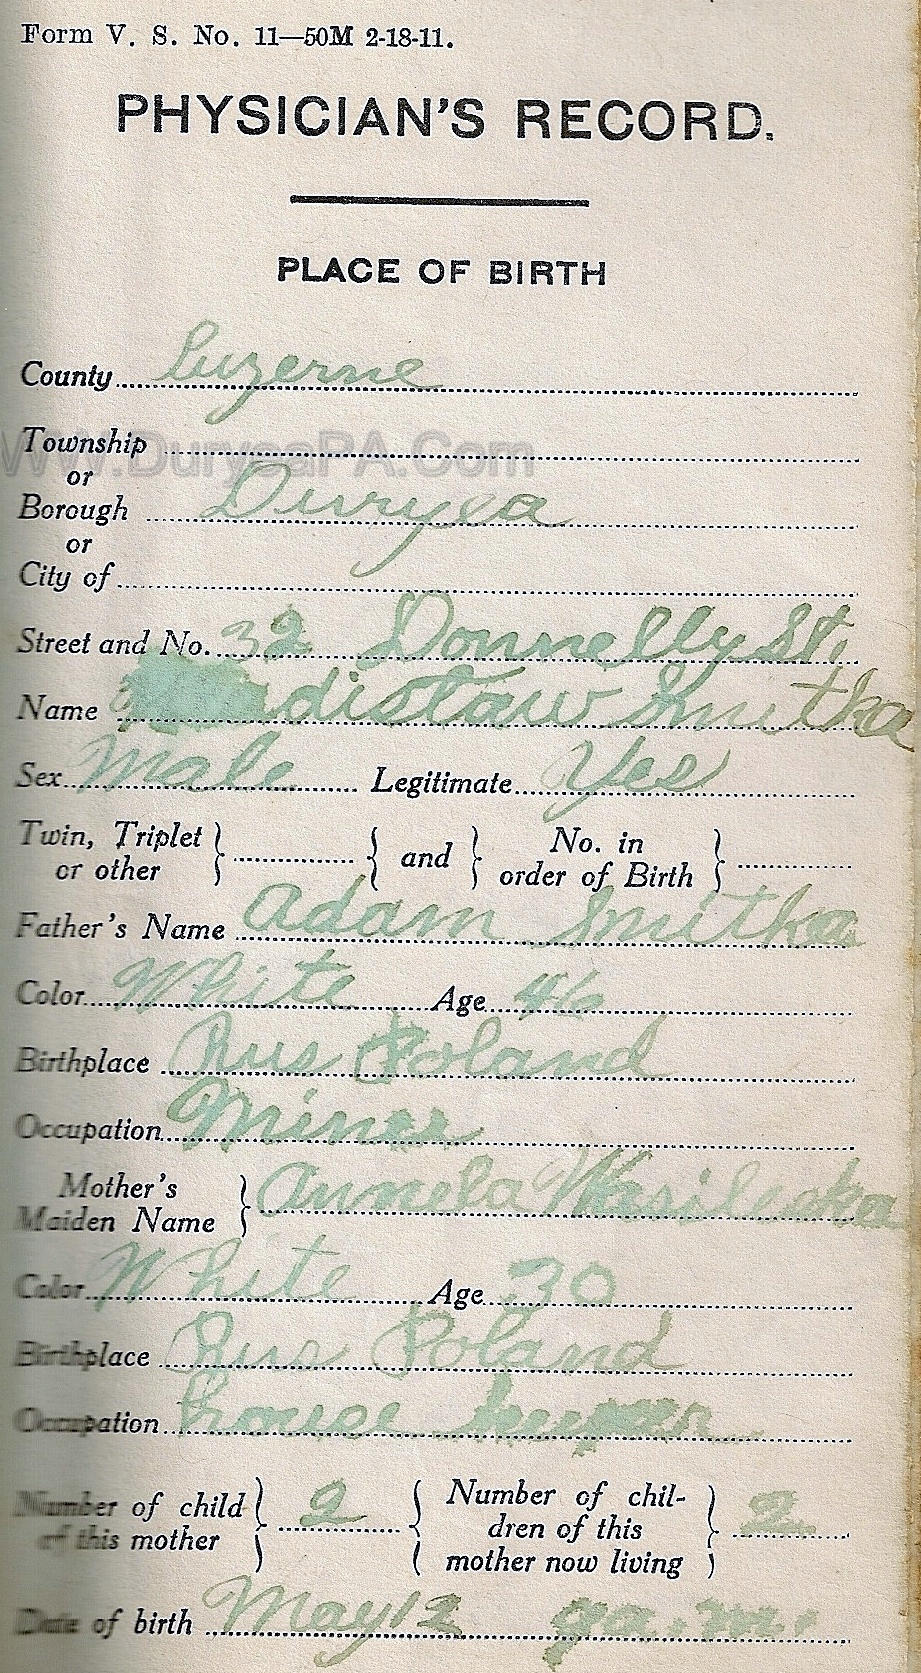 Form V. S. No. 11—50M 2-18-11.
PHYSICIAN'S RECORD.
PLACE OF BIRTH
County Luzerne
Township
WWW.DuryeaPA.Com
or
Borough Duryea
or
City of
Street and No. 32 Donnelly St.
Name distaw Smitka
Sex Male Legitimate Yes
Twin, Triplet or other } { and } No. in order of Birth }
Father's Name Adam Smitka
Color White Age 46
Birthplace Rus Poland
Occupation Miner
Mother's Maiden Name } Annela
Color White Age 30
Birthplace Rus Poland
Occupation house keeper
Number of child of this mother } 2 { Number of children of this mother now living } 2
Date of birth May 12 9 a.m.